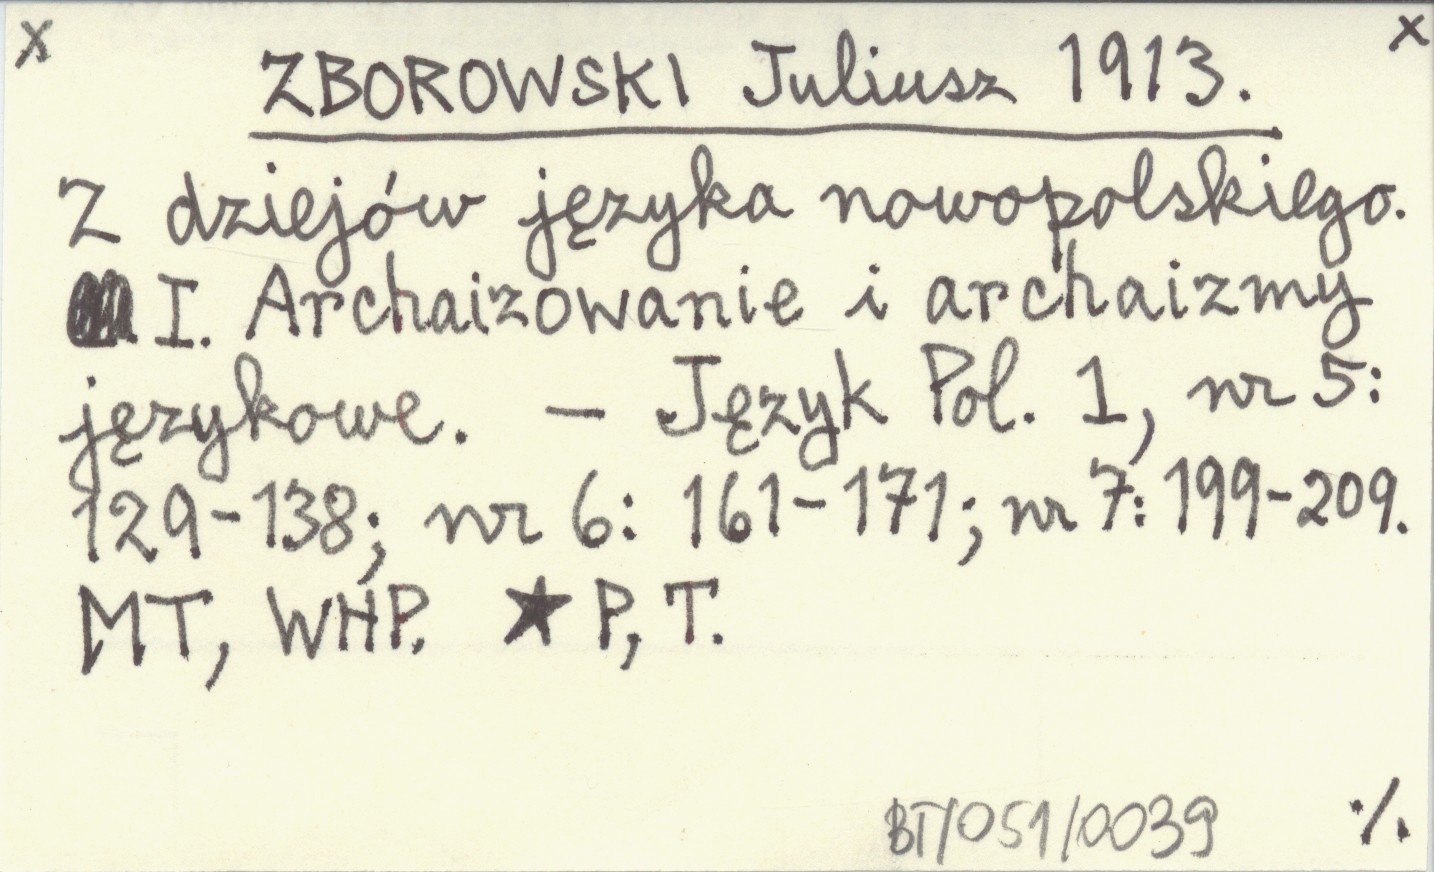 x x
ZBOROWSKI Juliusz 1913.
Z dziejów języka nowopolskiego.
I. Archaizowanie i archaizmy
językowe. – Język Pol. 1, nr 5:
129-138; nr 6: 161-171; nr 7: 199-209.
MT, WHP. ★ P, T.
BT/051/0039 ·/.